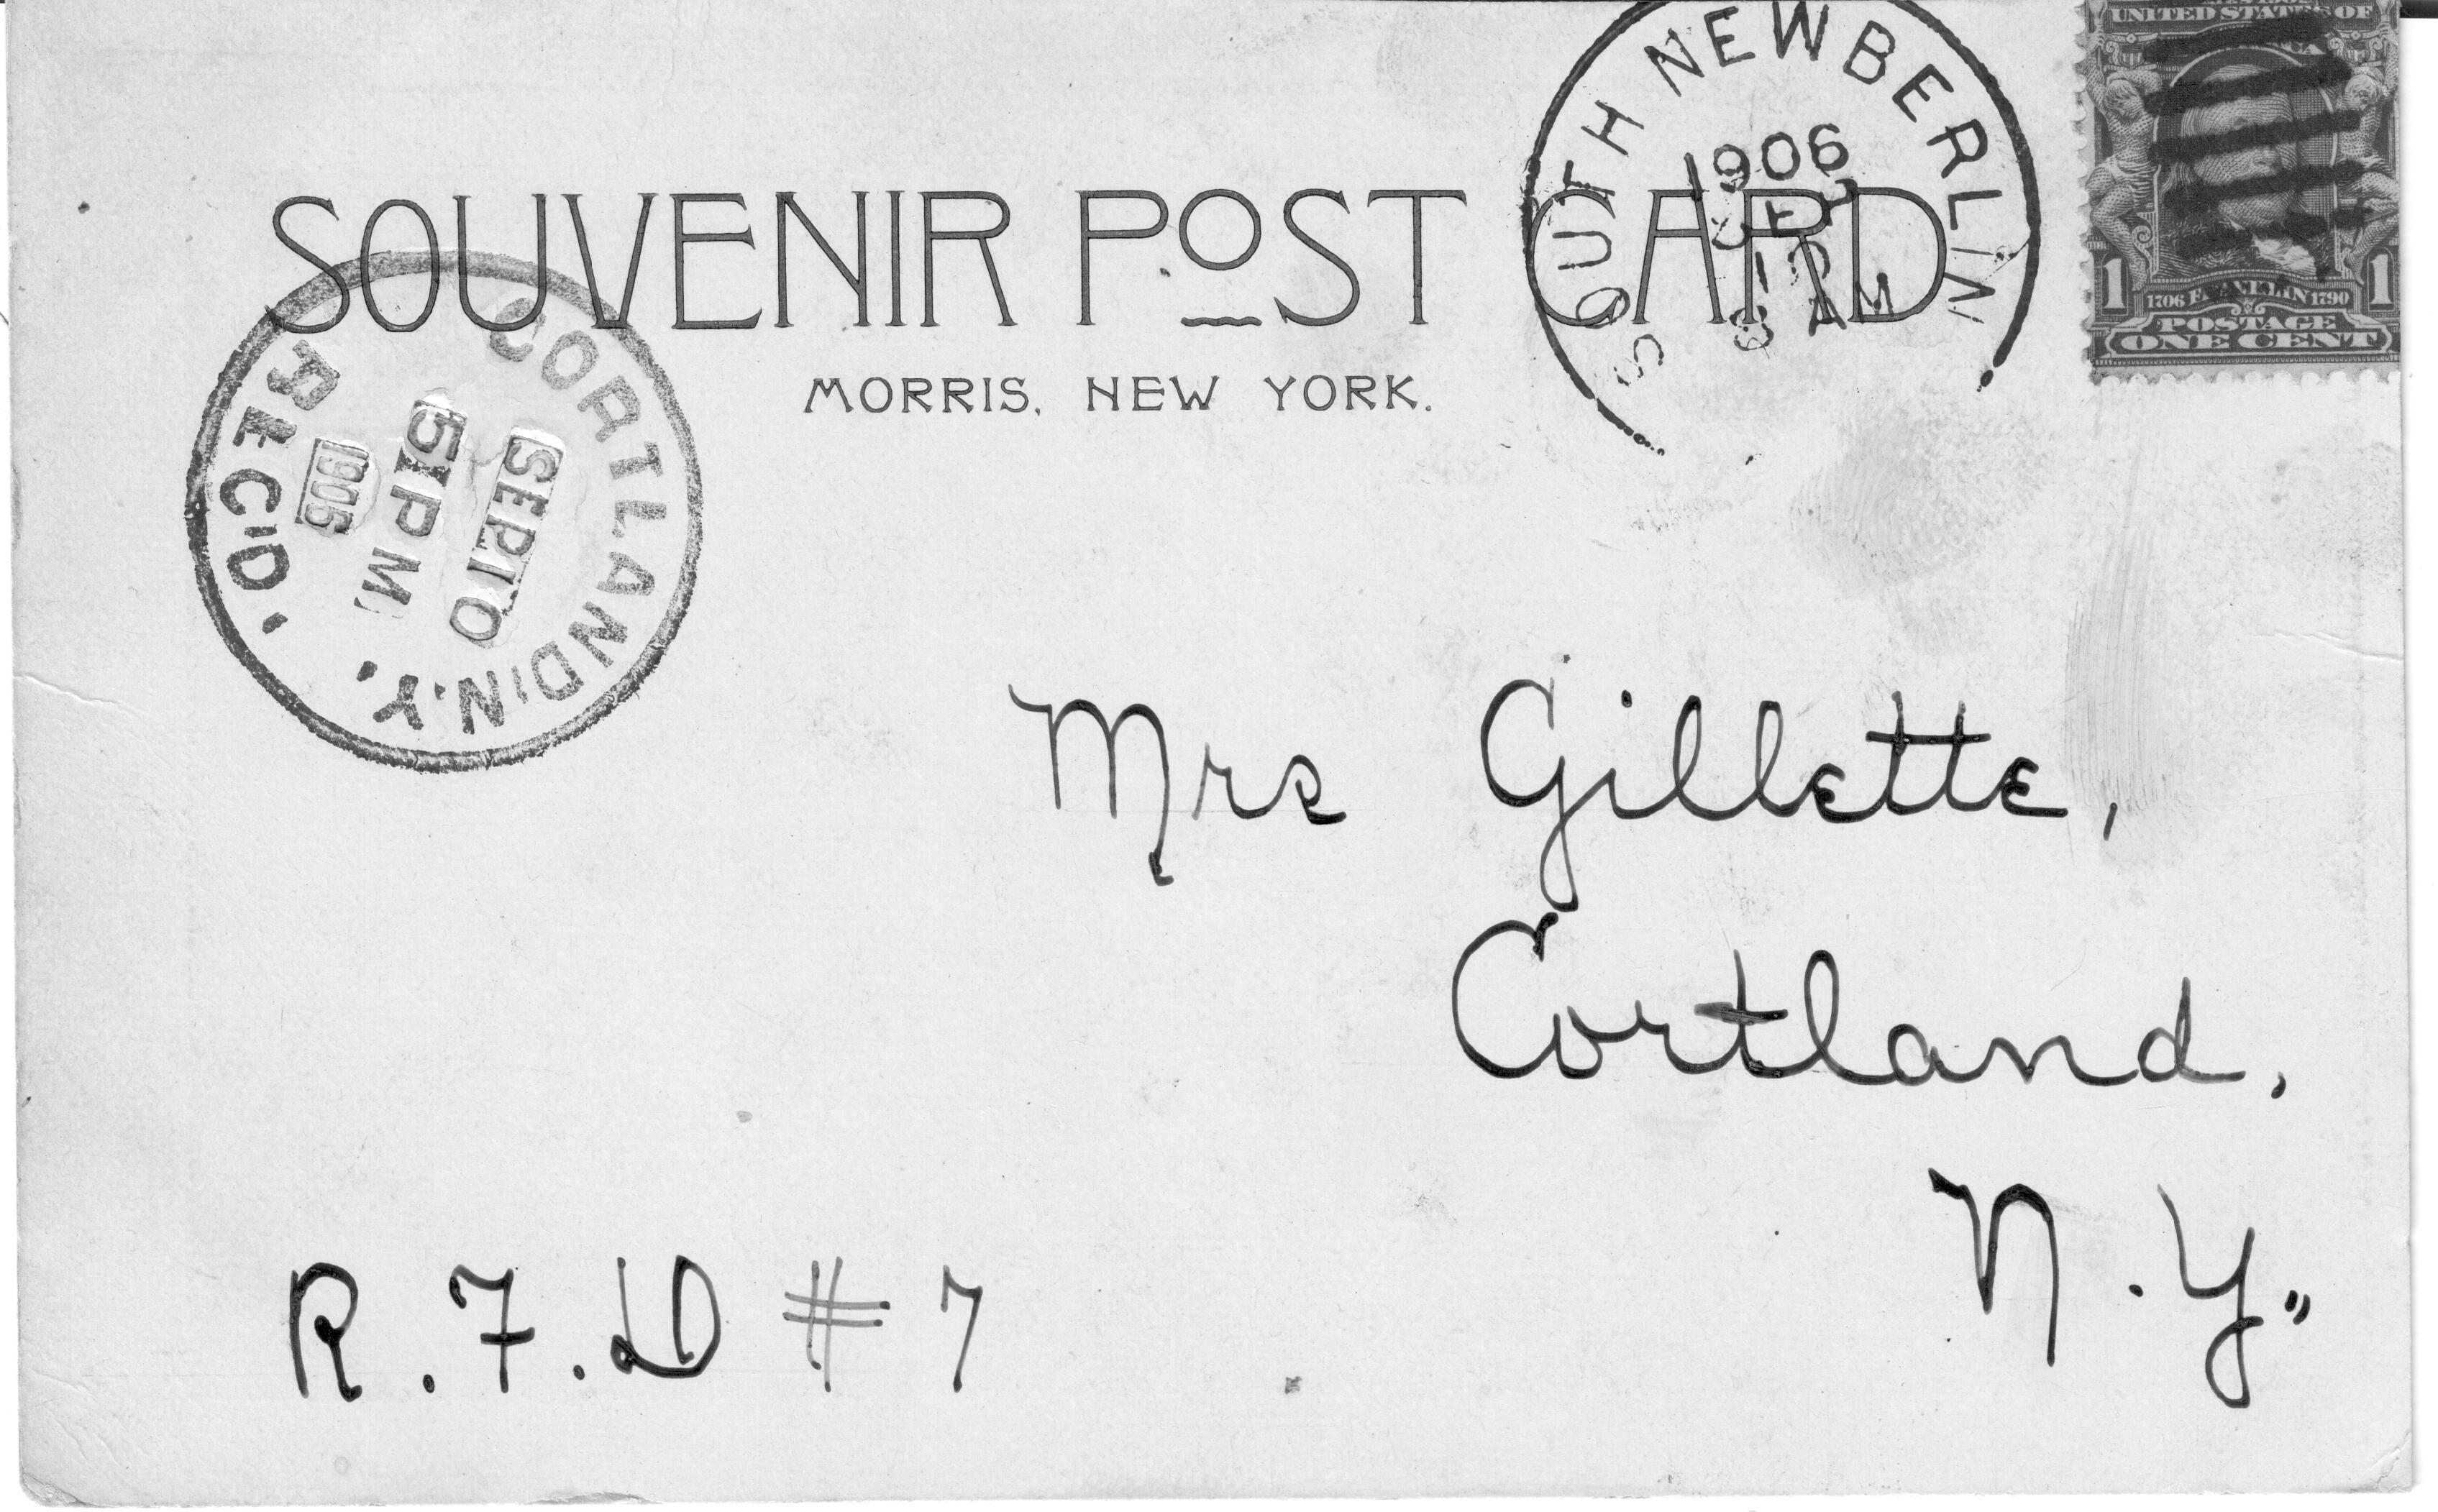 UNITED STATES OF
1706 FRANKLIN 1790
1 1
POSTAGE
ONE CENT
SOUTH NEW BERLIN
1906
SEP
10
8 AM
SOUVENIR POST CARD.
MORRIS, NEW YORK.
CORTLAND, N.Y.
SEP 10
5 PM
1906
REC'D.
Mrs Gillette,
Cortland,
N.Y.,
R.F.D # 7